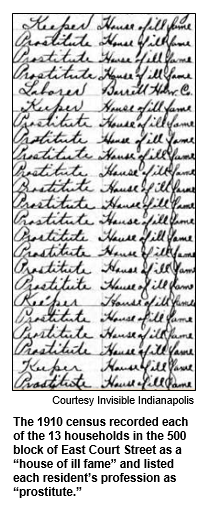 Keeper House of ill fame
Prostitute House of ill fame
Prostitute House of ill fame
Prostitute House of ill fame
Laborer Barrett Hdw. Co.
Keeper House of ill fame
Prostitute House of ill fame
Prostitute House of ill fame
Prostitute House of ill fame
Prostitute House of ill fame
Prostitute House of ill fame
Prostitute House of ill fame
Prostitute House of ill fame
Prostitute House of ill fame
Prostitute House of ill fame
Prostitute House of ill fame
Prostitute House of ill fame
Keeper House of ill fame
Prostitute House of ill fame
Prostitute House of ill fame
Prostitute House of ill fame
Keeper House of ill fame
Prostitute House of ill fame
Courtesy Invisible Indianapolis
The 1910 census recorded each
of the 13 households in the 500
block of East Court Street as a
“house of ill fame” and listed
each resident’s profession as
“prostitute.”